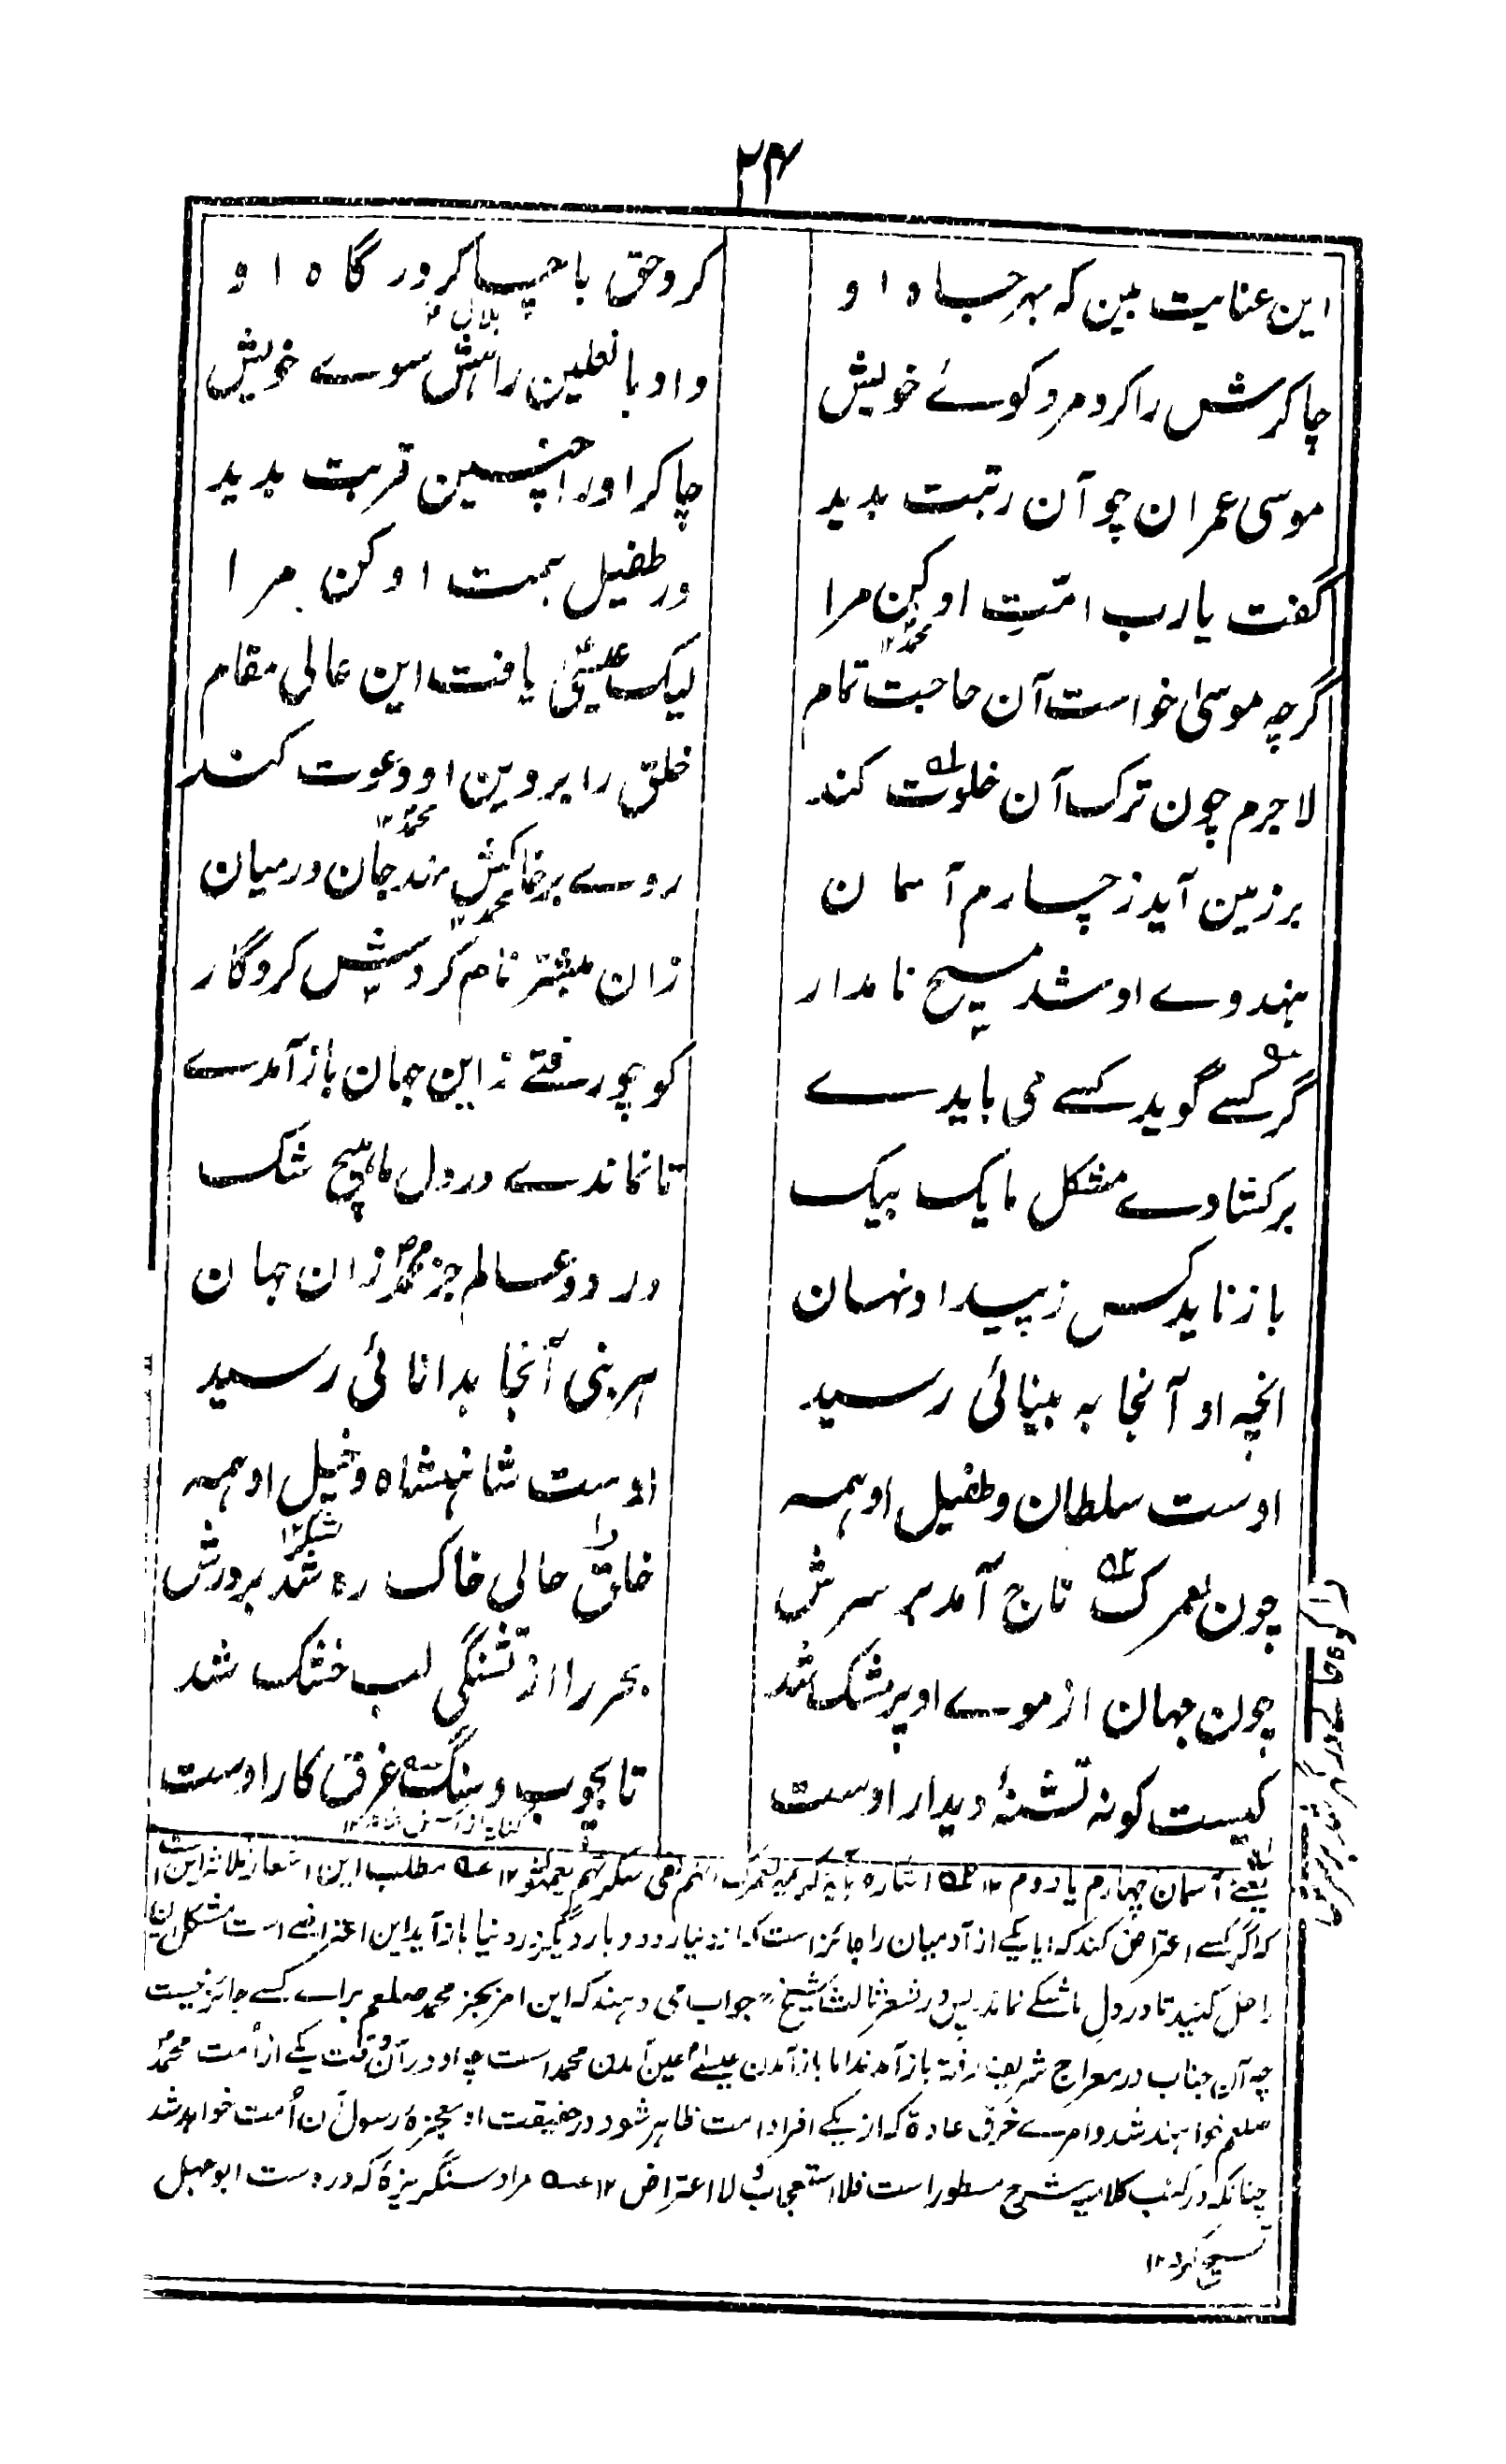 ۲۴
این عنایت بین که بهر جاه او کرد حق با چاکر درگاه او
بلال ۱۲
چاکرش را کرد مرد کوئے خویش داد با نعلین راهش سوے خویش
موسی عمران چو آن رتبت بدید چاکر او را چنین قربت بدید
گفت یارب امّت او کن مرا در طفیل همت او کن مرا
محمد ۱۲
اگرچه موسیٰ خواست آن حاجت تمام لیک عیسیٰ یافت این عالی مقام
لاجرم چون ترک آن خلوت کند خلق را بر دین او دعوت کند
محمد ۱۲
بر زمین آید ز چارم آسمان روے بر خاکش نهد جان درمیان
محمد ۱۲
هندوے او شد مسیح نامدار زان مبشر نام کردش کردگار
گر کسے گوید کسے می بایدے کو چو رفتے زاین جهان باز آمدے
برکشادے مشکل ما یک بیک تا نماندے در دل ما هیچ شک
باز ناید کس ز پیدا و نهان در دو عالم جز محمد زان جهان
انچه او آنجا به بینائی رسید هر نبی آنجا بدانائی رسید
اوست سلطان و طفیل او همه اوست شاهنشاه و خیل او همه
چون لعمرک تاج آمد بر سرش خلق حالی خاک ره شد بر درش
چون جهان از موے او پر مشک شد بحر را از تشنگی لب خشک شد
کیست کو نه تشنهٔ دیدار اوست تا بچوب و سنگ غرق کار اوست
یعنے آسمان چهارم یا دوم ۱۲ اشاره بآیه کریمه لعمرک انهم لفی سکرتهم یعمهون ۱۲ مطلب این اشعار ثلاثه این است
که اگر کسے اعتراض کند که آیا یکے از آدمیان را جائز است که از دنیا رود و بار دیگر در دنیا باز آید این اعتراضے است مشکل این
را حل کنید تا در دل ما شکے نماند پس در شعر ثالث شیخ جواب می دهند که این امر بجز محمد صلعم براے کسے جائز نیست
چه آن جناب در معراج شریف رفته باز آمدند اما باز آمدن عیسے عین آمدن محمد است چه او در آن وقت یکے از اُمت محمد
صلعم خواهند شد و امرے خرق عادة که از یکے افراد امت ظاهر شود در حقیقت او معجزهٔ رسول آن اُمت خواهد شد
چنانکه در کتب کلامیه مشرح مسطور است فلا استعجاب و لا اعتراض ۱۲ مراد سنگریزهٔ که در دست ابوجهل
تسبیح کرد ۱۲